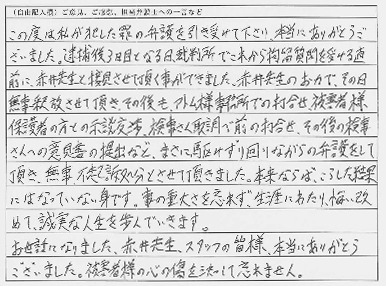 (自由記入欄) ご意見、ご感想、担当弁護士への一言など
この度は私が犯した罪の弁護を引き受けて下さい、本当にありがとうご
ざいました。逮捕後3日目となる日、裁判所でこれから拘留質問を受ける直
前に、赤井先生と接見させて頂く事ができました。赤井先生のお力で、その日
無事釈放させて頂き、その後もアトム様事務所での打合せ、被害者様
保護者の方との示談交渉、検事さん取調べ前の打合せ、その後の検事
さんへの意見書の提出など、まさに駆けずり回りながらの弁護をして
頂き、無事、不起訴処分とさせて頂けました。本来ならば、こうした結果
にはなっていない身です。事の重大さを忘れず、生涯にわたり、悔い改
めて、誠実な人生を歩んでいきます。
お世話になりました、赤井先生、スタッフの皆様、本当にありがとう
ございました。被害者様の心の傷を決して忘れません。